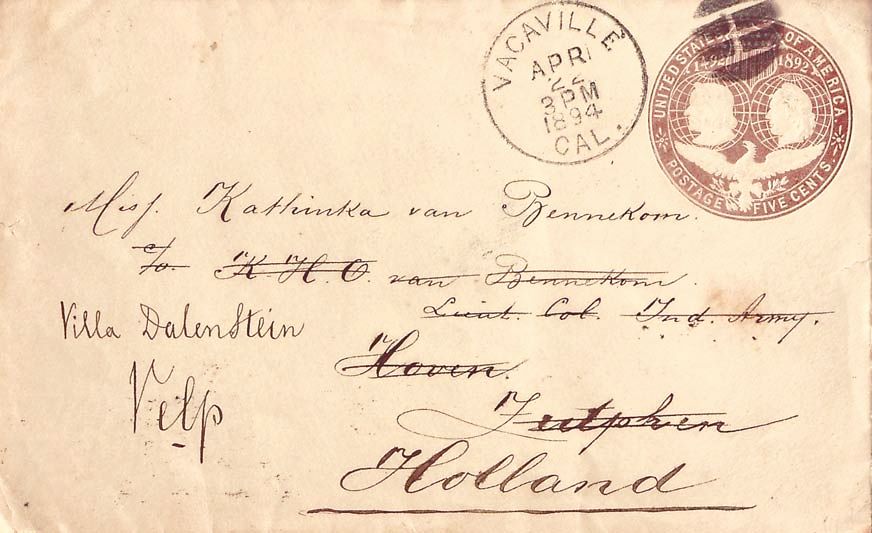 VACAVILLE
APR
22
3 PM
1894
CAL.
UNITED STATES OF AMERICA.
1492 1892
POSTAGE FIVE CENTS.
Miss. Kathinka van Bennekom.
c/o. K. H. C. van Bennekom.
Lieut. Col. Ind. Army.
Villa Dalenstein
Hoven.
Velp
Zutphen
Holland